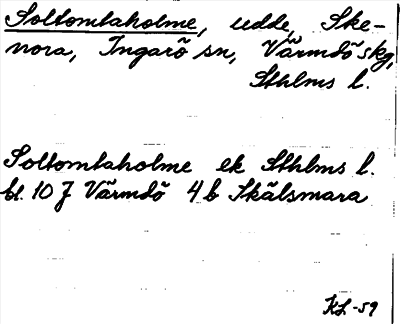 Soltomtaholme, udde, Ske-
nora, Ingarö sn, Värmdö skg,
Sthlms l.
Soltomtaholme ek Sthlms l.
bl. 10 J Värmdö 4 b Skälsmara
KL -59